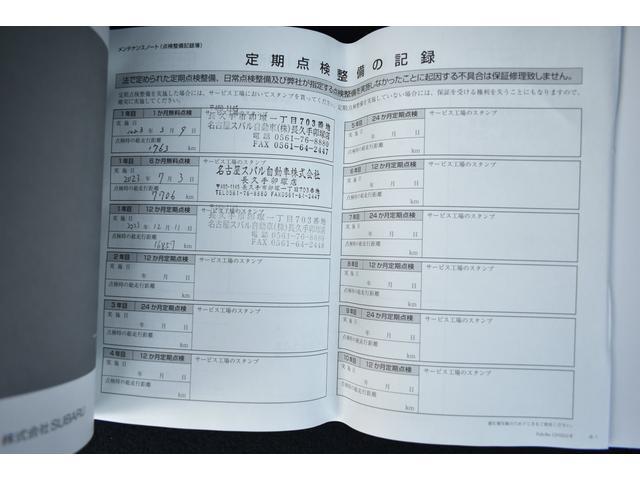 メンテナンスノート(点検整備記録簿)
定期点検整備の記録
法で定められた定期点検整備、日常点検整備及び弊社が指定する点検整備を実施しなかったことに起因する不具合は保証修理致しません。
定期点検整備を実施した場合には、サービス工場においてスタンプを貰ってください。定期点検整備を実施していない場合には、保証を受ける権利を失うことにもなりますので、
確実に実施してください。
1年目 1か月無料点検 サービス工場のスタンプ
実施日
2023年3月8日
点検時の総走行距離
1763 km
長久手市卯塚一丁目703番地
名古屋スバル自動車(株)長久手卯塚店
電話 0561-76-8880
FAX 0561-64-2447
1年目 6か月無料点検 サービス工場のスタンプ
実施日
2023年7月3日
点検時の総走行距離
7706 km
名古屋スバル自動車株式会社
長久手卯塚店
TEL0561-76-8880 FAX0561-64-2447
1年目 12か月定期点検 サービス工場のスタンプ
実施日
2023年12月11日
点検時の総走行距離
16857 km
長久手市卯塚一丁目703番地
名古屋スバル自動車(株)長久手卯塚店
電話 0561-76-8880
FAX 0561-64-2447
2年目 24か月定期点検 サービス工場のスタンプ
実施日
年 月 日
点検時の総走行距離
km
3年目 24か月定期点検 サービス工場のスタンプ
実施日
年 月 日
点検時の総走行距離
km
4年目 12か月定期点検 サービス工場のスタンプ
実施日
年 月 日
点検時の総走行距離
km
5年目 24か月定期点検 サービス工場のスタンプ
実施日
年 月 日
点検時の総走行距離
km
6年目 12か月定期点検 サービス工場のスタンプ
実施日
年 月 日
点検時の総走行距離
km
7年目 24か月定期点検 サービス工場のスタンプ
実施日
年 月 日
点検時の総走行距離
km
8年目 12か月定期点検 サービス工場のスタンプ
実施日
年 月 日
点検時の総走行距離
km
9年目 24か月定期点検 サービス工場のスタンプ
実施日
年 月 日
点検時の総走行距離
km
10年目 12か月定期点検 サービス工場のスタンプ
実施日
年 月 日
点検時の総走行距離
km
株式会社SUBARU